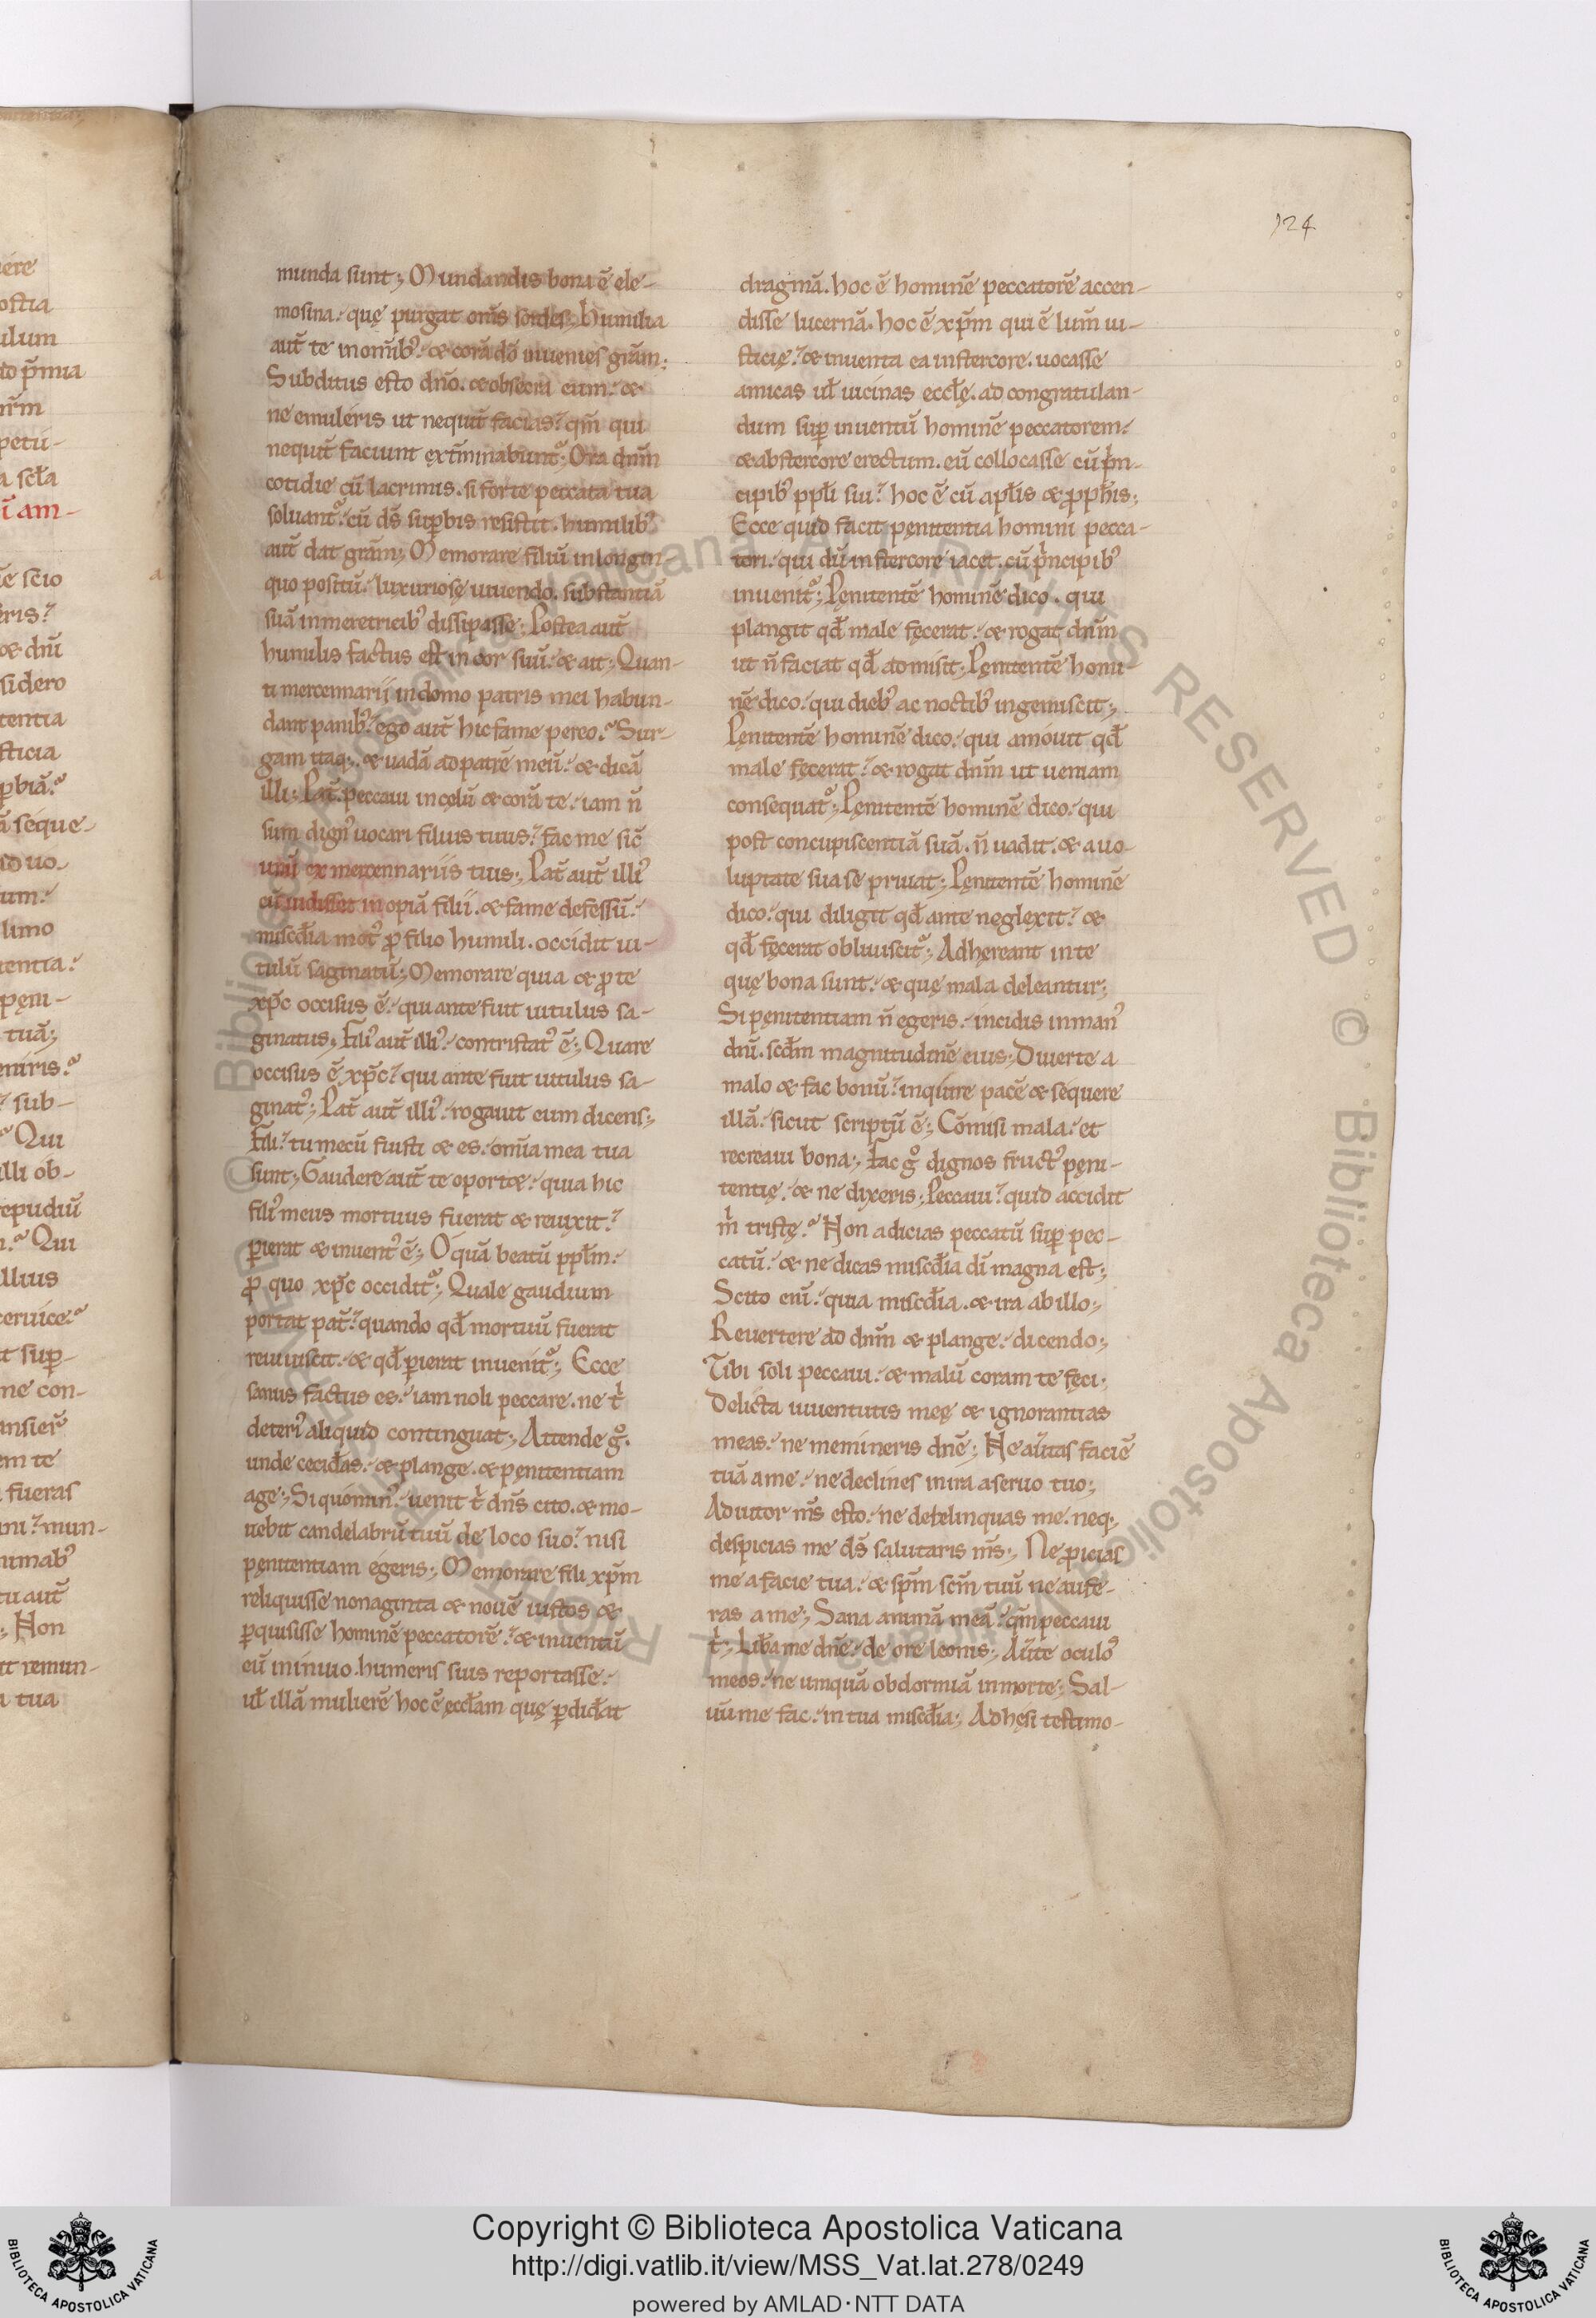 124
munda sunt; Mundandis bona ē ele-
mosina. quę purgat om̄s sordes; humilia
aut̄ te in omīb᷒. & corā dō inuenies grām;
Subditus esto dn̄o. & obsecra eum. &
ne emuleris ut nequit̄ facias. qm̄ qui
nequit̄ faciunt ext̄minabunt᷑; Ora dnm̄
cotidie cū lacrimis. si forte peccata tua
soluant᷑. cū ds̄ suꝑbis resistit. humilib᷒
aut̄ dat grām; Memorare filiū in longin
quo positū. luxuriose uiuendo. substantiā
suā in meretricib᷒ dissipasse; Postea aut̄
humilis factus est in cor suū. & ait; Quan-
ti mercennarii in domo patris mei habun-
dant panib᷒. ego aut̄ hic fame pereo. Sur-
gam itaq;. & uadā ad patrē meū. & dicā
illi; Pat̄. peccaui in cęlū & corā te. iam n̄
sum dign᷒ uocari filius tuus. fac me sic̄
unū ex mercennariis tuis; Pat̄ aut̄ illi᷒
cū uidisset inopiā filii. & fame defessū.
miscd̄ia mot᷒ ꝓ filio humili. occidit ui-
tulū saginatū; Memorare quia & ꝓ te
xp̄c occisus ē. qui ante fuit uitulus sa-
ginatus; Fili᷒ aut̄ illi᷒. contristat᷒ ē; Quare
occisus ē xp̄c. qui ante fuit uitulus sa-
ginat᷒; Pat̄ aut̄ illi᷒. rogauit eum dicens;
Fili. tu mecū fuisti & es. om̄ia mea tua
sunt; Gaudere aut̄ te oport&. quia hic
fili᷒ meus mortuus fuerat & reuixit.
ꝑierat & inuent᷒ ē; O quā beatū ppl̄m.
ꝓ quo xp̄c occidit᷑; Quale gaudium
portat pat̄. quando qd̄ mortuū fuerat
reuiuiscit. & qd̄ ꝑierat inuenit᷑; Ecce
sanus factus es. iam noli peccare. ne tⁱ
deteri᷒ aliquid contingat; Attende gͦ.
unde cecid̄as. & plange. & pęnitentiam
age; Si quomin᷒. uenit tⁱ dn̄s cito. & mo-
uebit candelabrū tuū de loco suo. nisi
pęnitentiam egeris; Memorare fili xp̄m
reliquisse nonaginta & nouē iustos &
ꝑquisisse hominē peccatorē. & inuentū
eū in humeris suis reportasse.
ul̄ illā mulierē hoc ē ęccl̄am quę ꝑdid̄at
dragmā. hoc ē hominē peccatorē accen-
disse lucernā. hoc ē xp̄m qui ē lum̄ iu-
sticię. & inuenta ea in stercore. uocasse
amicas ul̄ uicinas eccl̄ę. ad congratulan-
dum suꝑ inuentū hominē peccatorem.
& ab stercore erectum. eū collocasse cū pⁱn-
cipib᷒ ppl̄i sui. hoc ē cū apl̄is & ꝓph̄is;
Ecce quid facit pęnitentia homini pecca-
tori. qui dū in stercore iacet. cū pⁱncipib᷒
inuenit᷑; Pęnitentē hominē dico. qui
plangit qd̄ male fecerat. & rogat dnm̄
ut n̄ faciat qd̄ admisit; Pęnitentē homi-
nē dico. qui dieb᷒ ac noctib᷒ ingemiscit;
Pęnitentē hominē dico. qui amouit qd̄
male fecerat. & rogat dnm̄ ut ueniam
consequat᷑; Pęnitentē hominē dico. qui
post concupiscentiā suā. n̄ uadit. & a uo-
luptate sua se priuat; Pęnitentē hominē
dico. qui diligit qd̄ ante neglexit. &
qd̄ fecerat obliuiscit᷑; Adhereant in te
quę bona sunt. & quę mala deleantur;
Si pęnitentiam n̄ egeris. incidis in man᷒
dn̄i. scd̄m magnitudinē eius; Diuerte a
malo & fac bonū. inquire pacē & sequere
illā. sicut scriptū ē; Cōmisi mala. et
recreaui bona; Fac gͦ dignos fruct᷒ pęni-
tentię. & ne dixeris; Peccaui. quid accidit
mⁱ triste. Non adicias peccatū suꝑ pec-
catū. & ne dicas miscd̄ia dī magna est;
Scito enī. quia miscd̄ia. & ira ab illo;
Reuertere ad dnm̄ & plange. dicendo;
Tibi soli peccaui. & malū coram te feci;
Delicta iuuentutis meę & ignorantias
meas. ne memineris dn̄e; Ne auertas faciē
tuā a me. ne declines in ira a seruo tuo;
Adiutor m̄s esto. ne derelinquas me. neq;
despicias me ds̄ salutaris m̄s; Ne ꝓicias
me a facie tua. & sp̄m sc̄m tuū ne aufe-
ras a me; Sana animā meā. qm̄ peccaui
tⁱ; Lib̄a me dn̄e. de ore leonis; oculos
meos. ne umquā obdormiā in morte; Sal-
uū me fac. in tua miscd̄ia; Adhesi testimo-
Copyright © Biblioteca Apostolica Vaticana
http://digi.vatlib.it/view/MSS_Vat.lat.278/0249
powered by AMLAD·NTT DATA
BIBLIOTECA APOSTOLICA VATICANA
BIBLIOTECA APOSTOLICA VATICANA